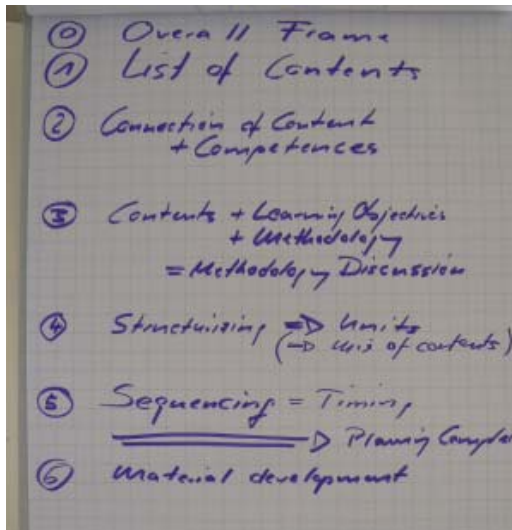 0 Overall Frame
1 List of Contents
2 Connection of Content
+ Competences
3 Contents + Learning Objectives
+ Methodology
= Methodology Discussion
4 Structurizing => Units
(→ Mix of contents)
5 Sequencing = Timing
Planning
6 Material development